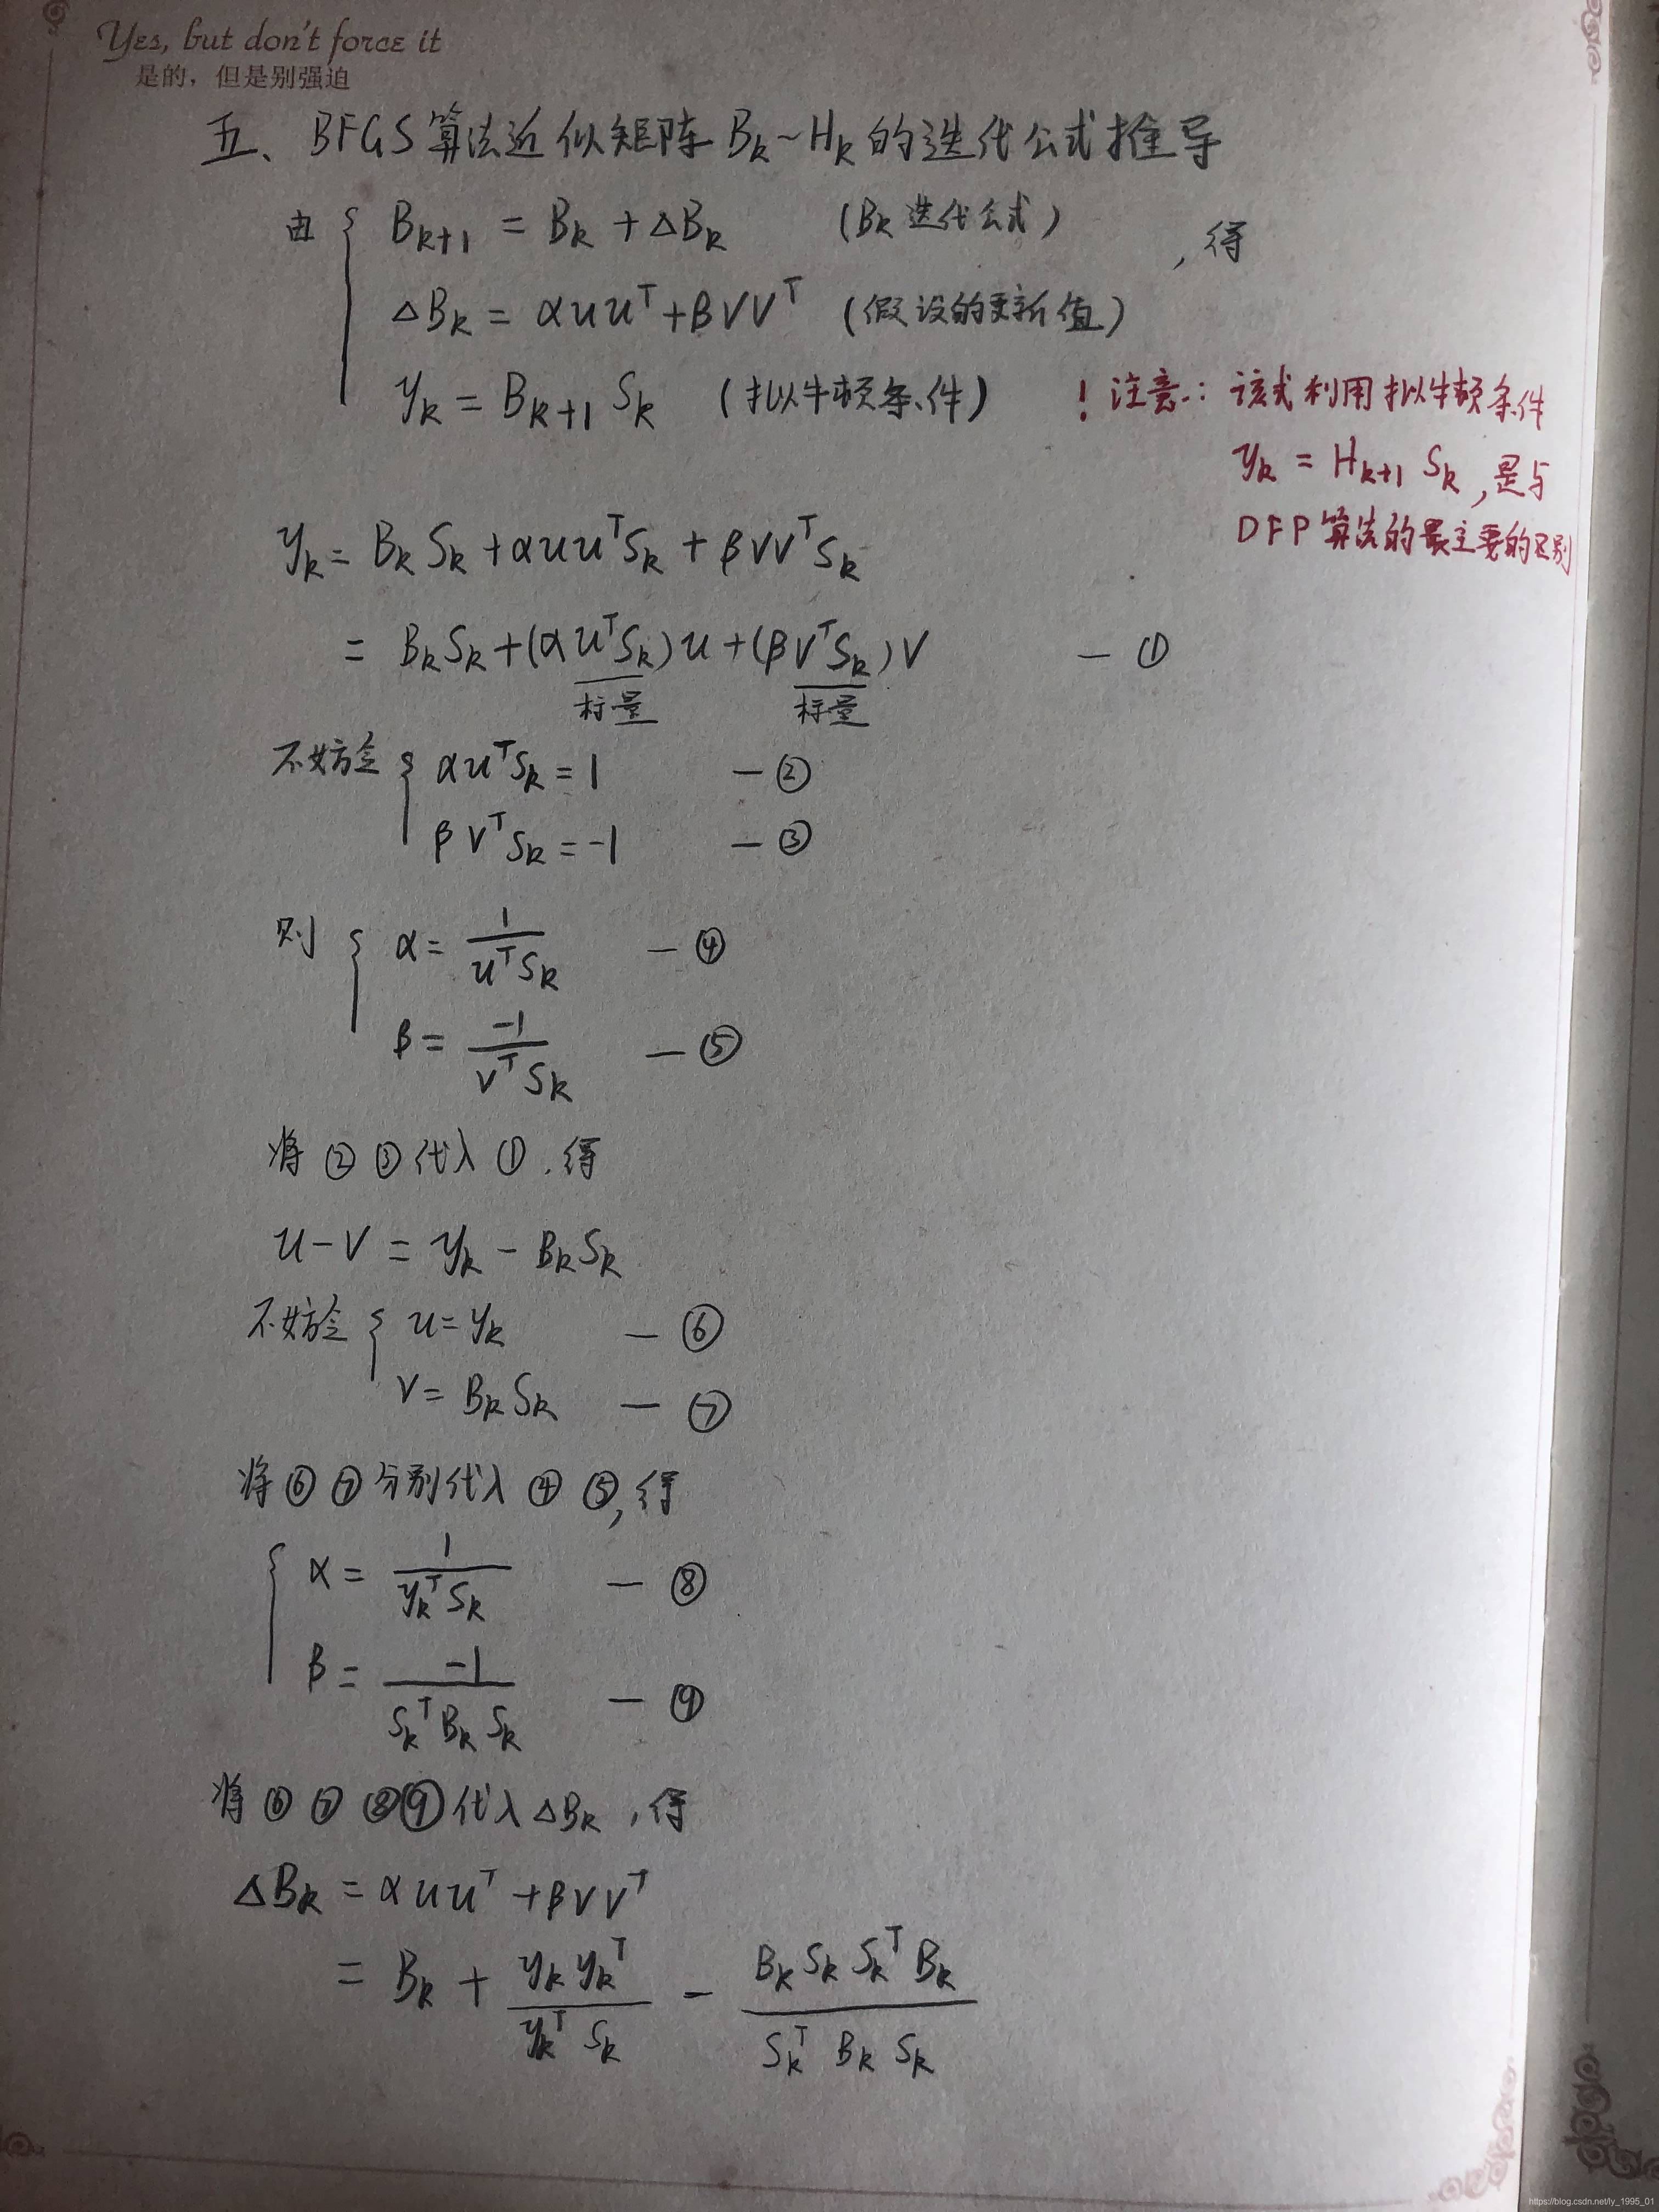 Yes, but don't force it
是的，但是别强迫
五、BFGS算法近似矩阵 Bₖ~Hₖ 的迭代公式推导
由 { Bₖ₊₁ = Bₖ + ΔBₖ （Bₖ 迭代公式） ，得
ΔBₖ = αuuᵀ + βvvᵀ （假设的更新值）
yₖ = Bₖ₊₁ Sₖ （拟牛顿条件）
! 注意：该式利用拟牛顿条件
yₖ = Hₖ₊₁ Sₖ，是与
DFP算法的最主要的区别
yₖ = Bₖ Sₖ + αuuᵀSₖ + βvvᵀSₖ
= BₖSₖ + (αuᵀSₖ)u + (βvᵀSₖ)v — ①
标量 标量
不妨令 { αuᵀSₖ = 1 — ②
βvᵀSₖ = -1 — ③
则 { α = 1 / uᵀSₖ — ④
β = -1 / vᵀSₖ — ⑤
将 ② ③ 代入 ①，得
u - v = yₖ - BₖSₖ
不妨令 { u = yₖ — ⑥
v = BₖSₖ — ⑦
将 ⑥ ⑦ 分别代入 ④ ⑤，得
{ α = 1 / yₖᵀSₖ — ⑧
β = -1 / SₖᵀBₖSₖ — ⑨
将 ⑥ ⑦ ⑧ ⑨ 代入 ΔBₖ，得
ΔBₖ = αuuᵀ + βvvᵀ
= Bₖ + yₖyₖᵀ / yₖᵀSₖ - BₖSₖSₖᵀBₖ / SₖᵀBₖSₖ
https://blog.csdn.net/ly_1995_01